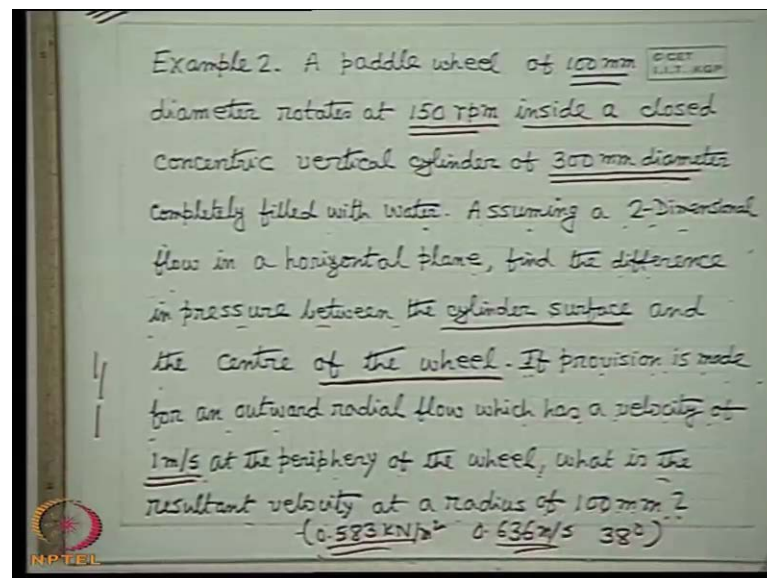 Example 2. A paddle wheel of 100 mm
© CET
I.I.T. KGP
diameter rotates at 150 rpm inside a closed
concentric vertical cylinder of 300 mm diameter
completely filled with water. Assuming a 2-Dimensional
flow in a horizontal plane, find the difference
in pressure between the cylinder surface and
the centre of the wheel. If provision is made
for an outward radial flow which has a velocity of
1 m/s at the periphery of the wheel, what is the
resultant velocity at a radius of 100 mm?
(0.583 KN/m² 0.636 m/s 38°)
NPTEL